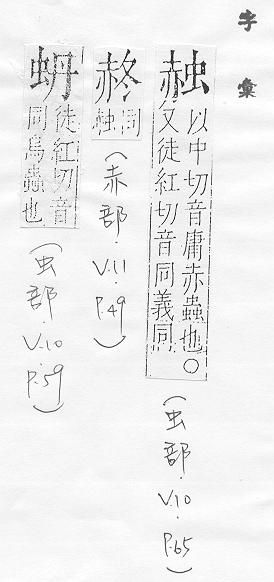 字彙
赨
以中切音庸赤蟲也○
又徒紅切音同義同
(虫部.V.10.P.65)
同
赨
(赤部.V.11.P.49)
蚒
徒紅切音
同鳥蟲也
(虫部.V.10.P.59)